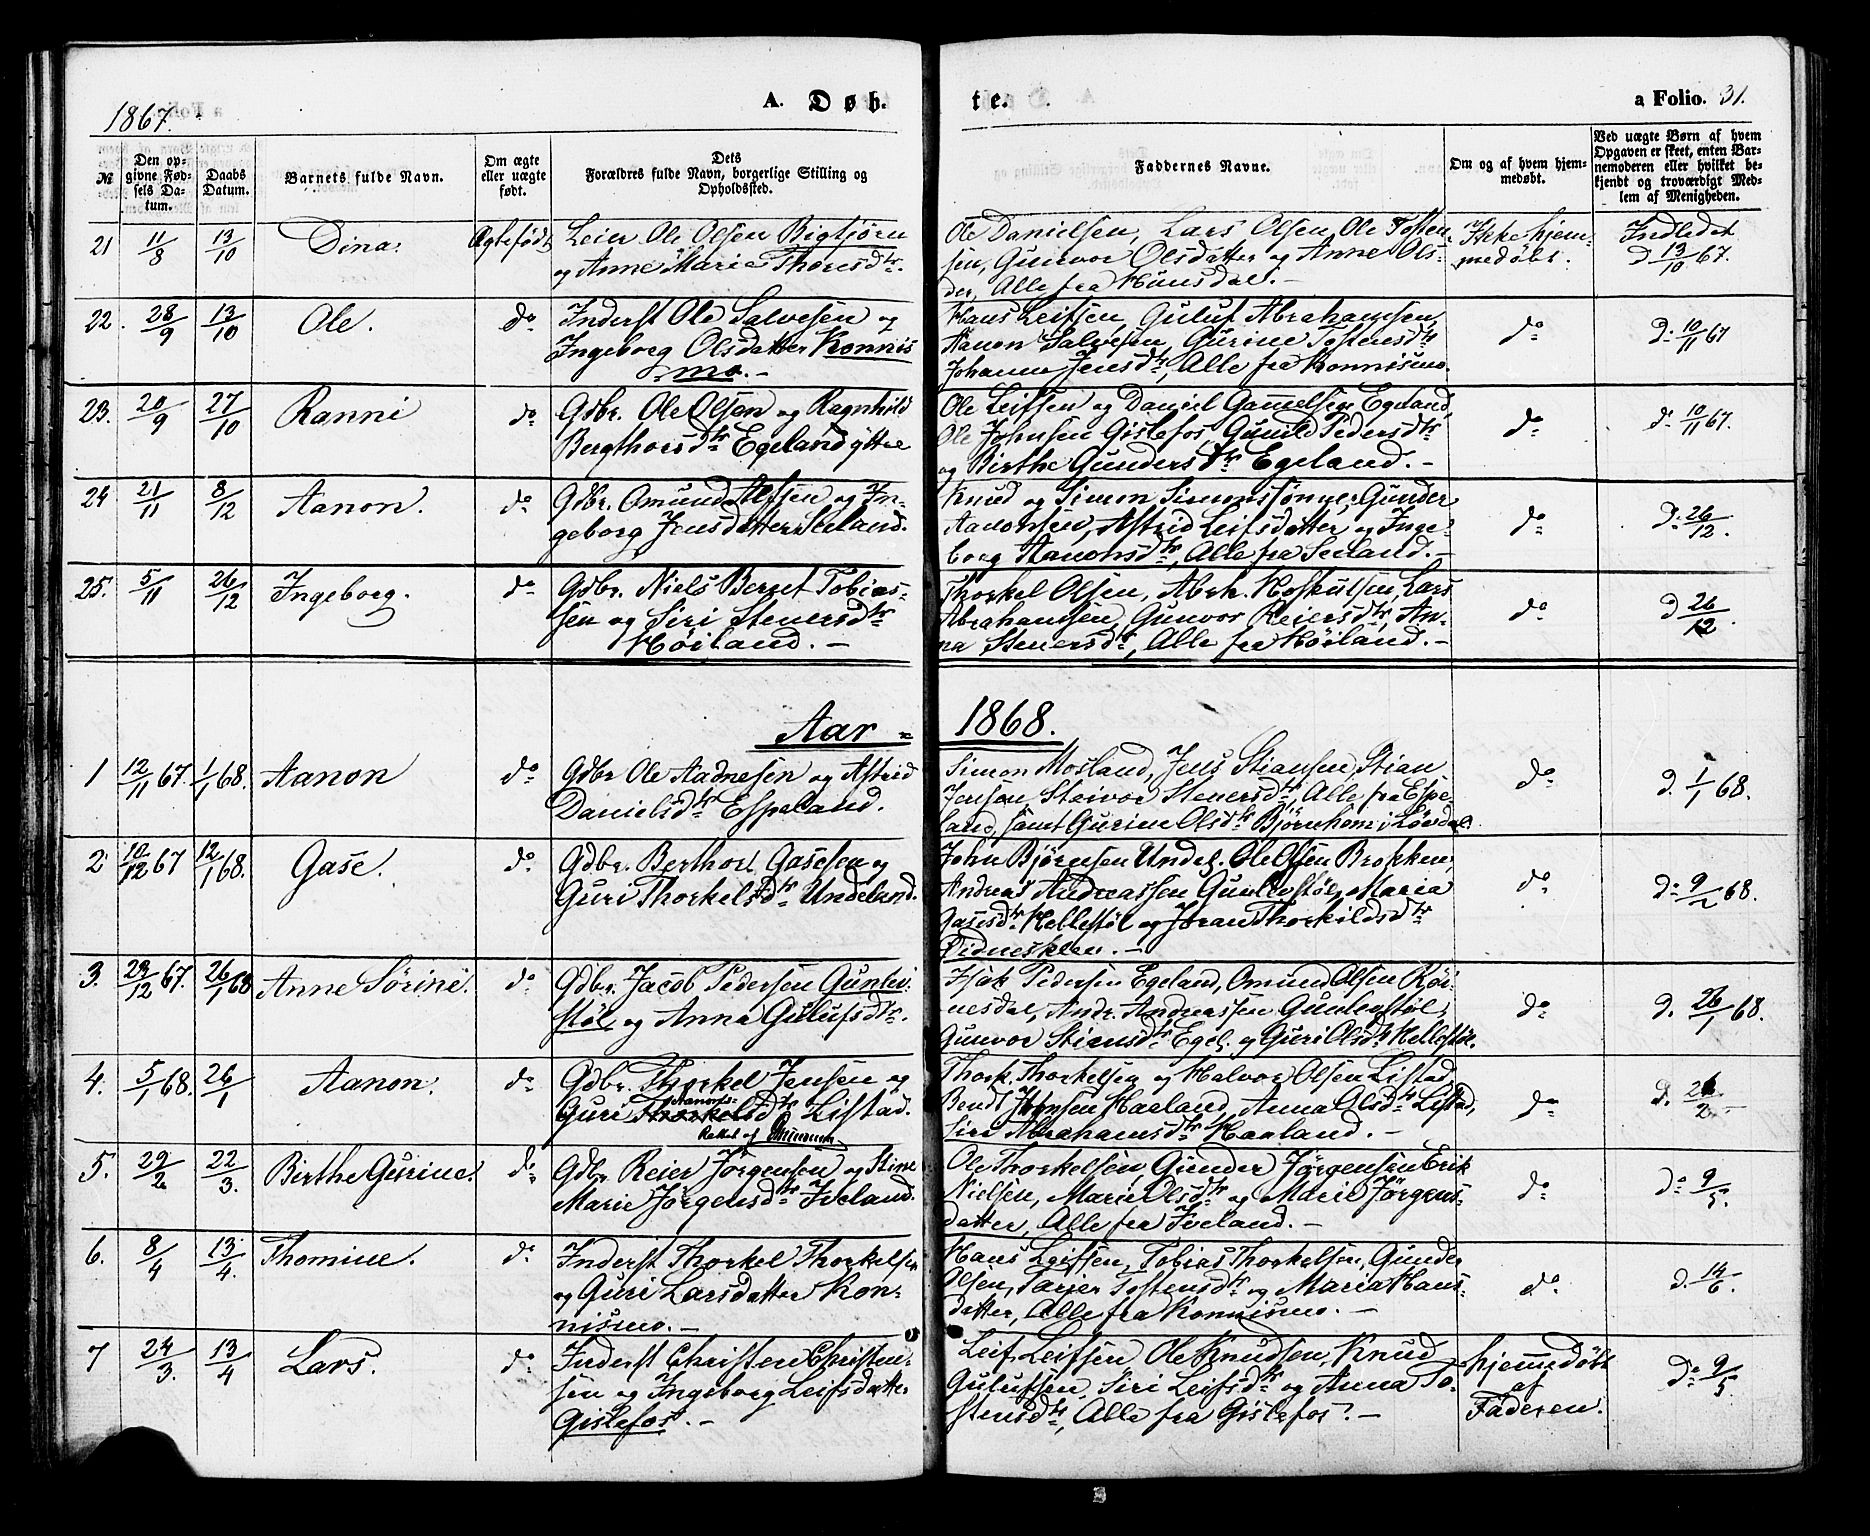 1867.
A. Døb-
te.
a Folio. 31.
№
Den op-
givne Fød-
sels Da-
tum.
Daabs
Datum.
Barnets fulde Navn.
Om ægte
eller uægte
født.
Dets
Forældres fulde Navn, borgerlige Stilling og
Opholdssted.
Faddernes Navne.
Om og af hvem hjem-
medøbt.
Ved uægte Børn af hvem
Opgaven er skeet, enten Bar-
nemoderen eller hvilket be-
kjendt og troværdigt Med-
lem af Menigheden.
21 11/8 13/10 Dina. Ægtefødt
Leier Ole Olsen Bigtjørn
og Anne Marie Thorsdtr.
Ole Danielsen, Lars Olsen, Ole Tosten-
sen, Gunvor Olsdatter og Anne Ols-
der, Alle fra Hunsdal. -
Ikke hjem-
medøbt.
Indledet
d. 13/10 67.
22. 28/9 13/10 Ole. do
Inderst Ole Salvesen og
Ingeborg Olsdatter Konnis
mo. -
Hans Leifsen, Guluf Abrahamsen,
Aanon Salvesen, Gurine Tostensdtr
Johanne Jensdtr, Alle fra Konnismo.
do
D. 10/11 67
23. 20/9 27/10 Ranni do
Gdbr. Ole Olsen og Ragnhild
Bergthorsdtr Egeland ytre
Ole Leifsen og Daniel Gamelsen Egeland,
Ole Johnsen Gislefos, Gunild Pedersdtr
og Birthe Gundersdtr Egeland. -
do
d. 10/11 67.
24 21/11 8/12 Aanon. do
Gdbr. Omund Alfsen og In-
geborg Jensdatter Seeland.
Knud og Simon Simonssønner, Gunder
Aanonsen, Astrid Leifsdatter og Inge-
borg Aanonsdtr, Alle fra Seeland. -
do
D. 26/12.
25. 5/11 26/12 Ingeborg. do
Gdbr. Niels Bernt Tobias-
sen og Siri Stenersdtr
Høiland. -
Thorkel Olsen, Abrh. Hoskulsen, Lars
Abrahamsen, Gunvor Reiersdtr, An-
na Stenersdtr, Alle fra Høiland. -
do
D 26/12.
Aar =
1868.
1 12/11 67. 1/1 68. Aanon do
Gdbr Ole Aadnesen og Astrid
Danielsdtr Espeland.
Simon Mosland, Jens Stiansen, Stian
Jensen, Steivor Stenersdtr, Alle fra Espe-
land, samt Gurine Olsdtr Bjørnhom i Løvdal.
do
d. 1/1 68.
2 10/12 67 12/1 68. Gase. do
Gdbr. Berthor Gasesen og
Guri Thorkelsdtr Undeland.
John Bjørnsen Undel. Ole Olsen Brokken,
Andreas Andreassen Gunlevstøl, Maria
Gasesdtr Hellestøl og Joran Thorkildsdtr
Øidneskleen. -
do
D. 9/2 68.
3. 29/12 67. 26/1 68 Anne Sørine. do
Gdbr. Jacob Pedersen Gunlev-
støl, og Anna Gulufsdtr.
Isak Pedersen Egeland, Omund Olsen Røi-
nesdal, Andr. Andreassen Gunlevstøl,
Gunvor Stiansdtr Egel. og Guri Olsdtr Hellestøl.
do
d. 26/1 68.
4. 5/1 68. 26/1 Aanon. do
Gdbr. Thorkel Jensen og
Aanons-
Guri Thorkelsdtr Listad.
Rettet af
Thork. Thorkelsen og Halvor Olsen Listad,
Bendt Johnsen Haaland, Anna Olsdtr Listad,
Siri Abrahamsdtr Haaland. -
do
D. 26/2
5. 29/2 22/3. Birthe Gurine. do
Gdbr Reier Jørgensen og Stine
Marie Jørgensdtr Iveland.
Ole Thorkelsen, Gunder Jørgensen Erik
Nielsen, Marie Olsdtr og Marie Jørgens-
datter, Alle fra Iveland. -
do
D. 9/5.
6. 8/4 13/4. Thomine. do
Inderst Thorkel Thorkelsen
og Guri Larsdatter Kon-
nismo. -
Hans Leifsen, Tobias Thorkelsen, Gunder
Olsen, Tarjer Tostensdtr og Maria Hans-
datter, Alle fra Konnismo. -
do
d. 14/6.
7 24/3. 13/4 Lars. do
Inderst Christen Christen-
sen og Ingeborg Leifsdatter
Gislefos. -
Leif Leifsen, Ole Knudsen, Knud
Gulufsen, Siri Leifsdtr og Anna To-
stensdtr, Alle fra Gislefos. -
Hjemmedøbt
af
Faderen.
D. 9/5